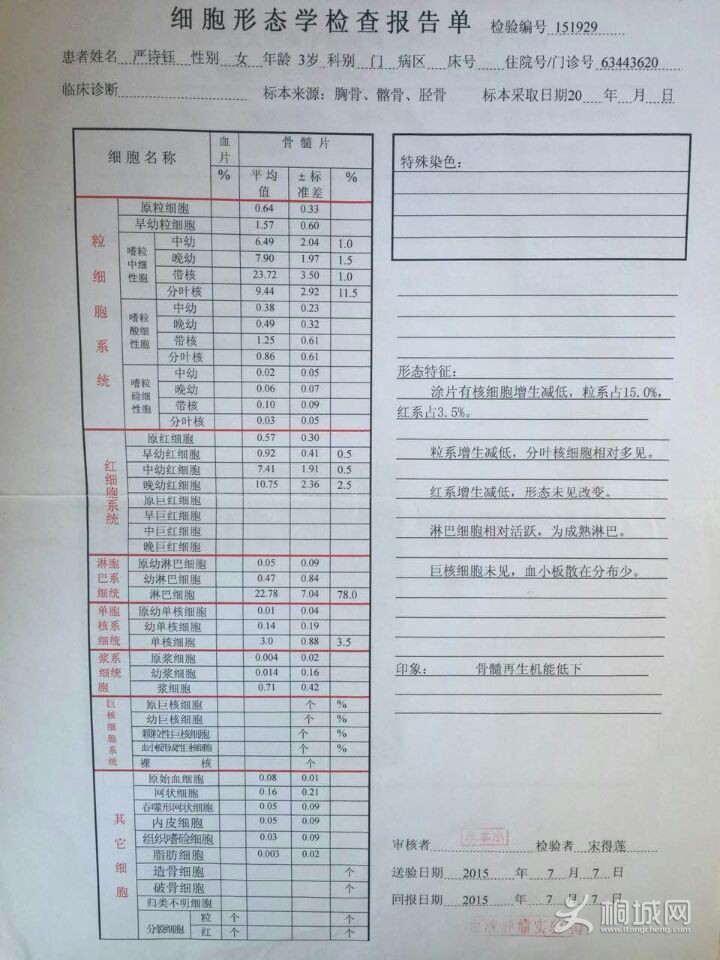 细胞形态学检查报告单 检验编号 151929
患者姓名 严诗钰 性别 女 年龄 3岁 科别 门 病区 床号 住院号/门诊号 63443620
临床诊断 标本来源：胸骨、髂骨、胫骨 标本采取日期20 年 月 日
细胞名称 血片 % 骨髓片
平均值 ±标准差 %
粒细胞系统
原粒细胞 0.64 0.33
早幼粒细胞 1.57 0.60
嗜中性粒细胞
中幼 6.49 2.04 1.0
晚幼 7.90 1.97 1.5
带核 23.72 3.50 1.0
分叶核 9.44 2.92 11.5
嗜酸性粒细胞
中幼 0.38 0.23
晚幼 0.49 0.32
带核 1.25 0.61
分叶核 0.86 0.61
嗜硷性粒细胞
中幼 0.02 0.05
晚幼 0.06 0.07
带核 0.10 0.09
分叶核 0.03 0.05
红细胞系统
原红细胞 0.57 0.30
早幼红细胞 0.92 0.41 0.5
中幼红细胞 7.41 1.91 0.5
晚幼红细胞 10.75 2.36 2.5
原巨红细胞
早巨红细胞
中巨红细胞
晚巨红细胞
淋巴细胞系统
原幼淋巴细胞 0.05 0.09
幼淋巴细胞 0.47 0.84
淋巴细胞 22.78 7.04 78.0
单核细胞系统
原幼单核细胞 0.01 0.04
幼单核细胞 0.14 0.19
单核细胞 3.0 0.88 3.5
浆细胞系统
原浆细胞 0.004 0.02
幼浆细胞 0.014 0.16
浆细胞 0.71 0.42
巨核细胞系统
原巨核细胞 个 %
幼巨核细胞 个 %
颗粒性巨核细胞 个 %
血小板形成性巨核细胞 个 %
裸核 个
其它细胞
原始血细胞 0.08 0.01
网状细胞 0.16 0.21
吞噬形网状细胞 0.05 0.09
内皮细胞 0.05 0.09
组织嗜硷细胞 0.03 0.09
脂肪细胞 0.003 0.02
造骨细胞 个
破骨细胞 个
归类不明细胞
分裂细胞
粒 个 个
红 个 个
特殊染色：
形态特征：
涂片有核细胞增生减低，粒系占15.0%，
红系占3.5%。
粒系增生减低，分叶核细胞相对多见。
红系增生减低，形态未见改变。
淋巴细胞相对活跃，为成熟淋巴。
巨核细胞未见，血小板散在分布少。
印象： 骨髓再生机能低下
审核者 检验者 宋得莲
送验日期 2015 年 7 月 7 日
回报日期 2015 年 7 月 7 日
桐城网
www.itongcheng.com